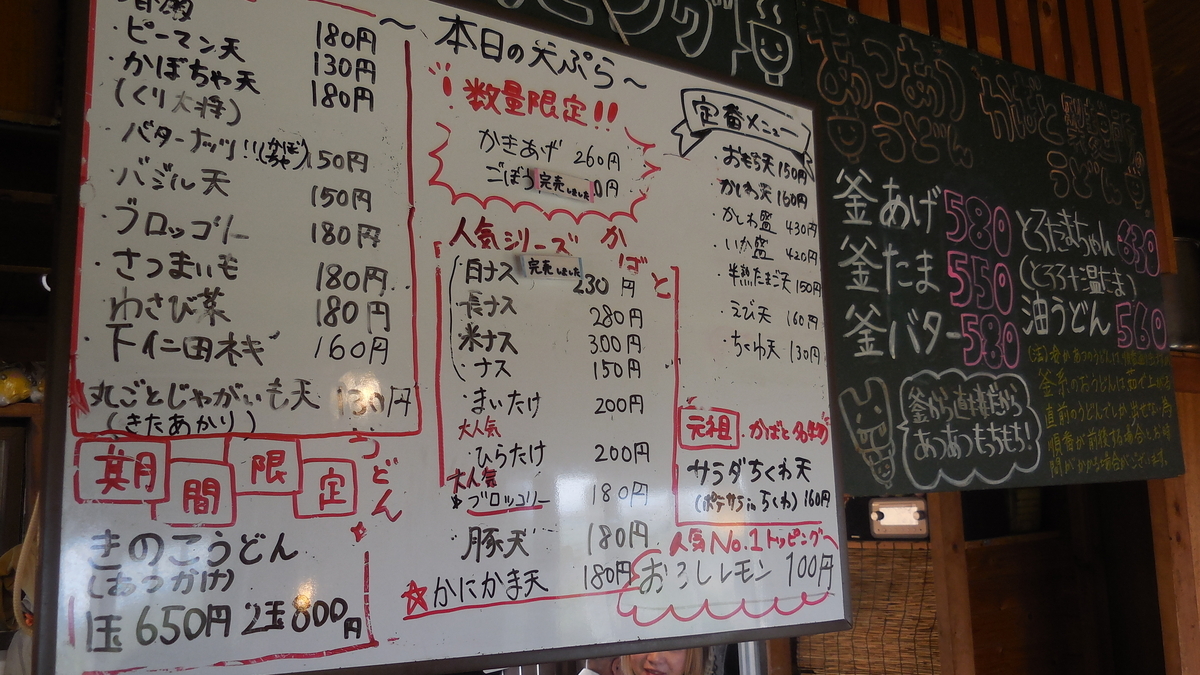 ピーマン天 180円
かぼちゃ天 130円
(くり大将) 180円
バターナッツ!!(かぼちゃ) 150円
バジル天 150円
ブロッコリー 180円
さつまいも 180円
わさび菜 180円
下仁田ネギ 160円
丸ごとじゃがいも天 130円
(きたあかり)
期間限定
うどん
きのこうどん
(あつかけ)
1玉 650円 2玉 800円
〜本日の天ぷら〜
数量限定!!
かきあげ 260円
ごぼう 完売しました 0円
人気シリーズ
白ナス 完売しました 230円
長ナス 280円
米ナス 300円
ナス 150円
まいたけ 200円
大人気
ひらたけ 200円
大人気
ブロッコリー 180円
豚天 180円
☆かにかま天 180円
定番メニュー
おもち天 150円
かしわ天 160円
かしわ盛 430円
いか盛 420円
半熟たまご天 150円
えび天 160円
ちくわ天 130円
元祖 かばと名物
サラダちくわ天
(ポテサラinちくわ) 160円
人気No.1トッピング
おろしレモン 100円
あつあつうどん
釜あげ 580
釜たま 550
釜バター 580
釜から直だから
あつあつもちもち!
かばと製麺所
うどん
とろたまちゃん 630
(とろろ+温たま)
油うどん 560
釜系のおうどんは茹で上げ
直前のうどんでしか出せない為
順番が前後する場合とお時
間がかかる場合がございます。